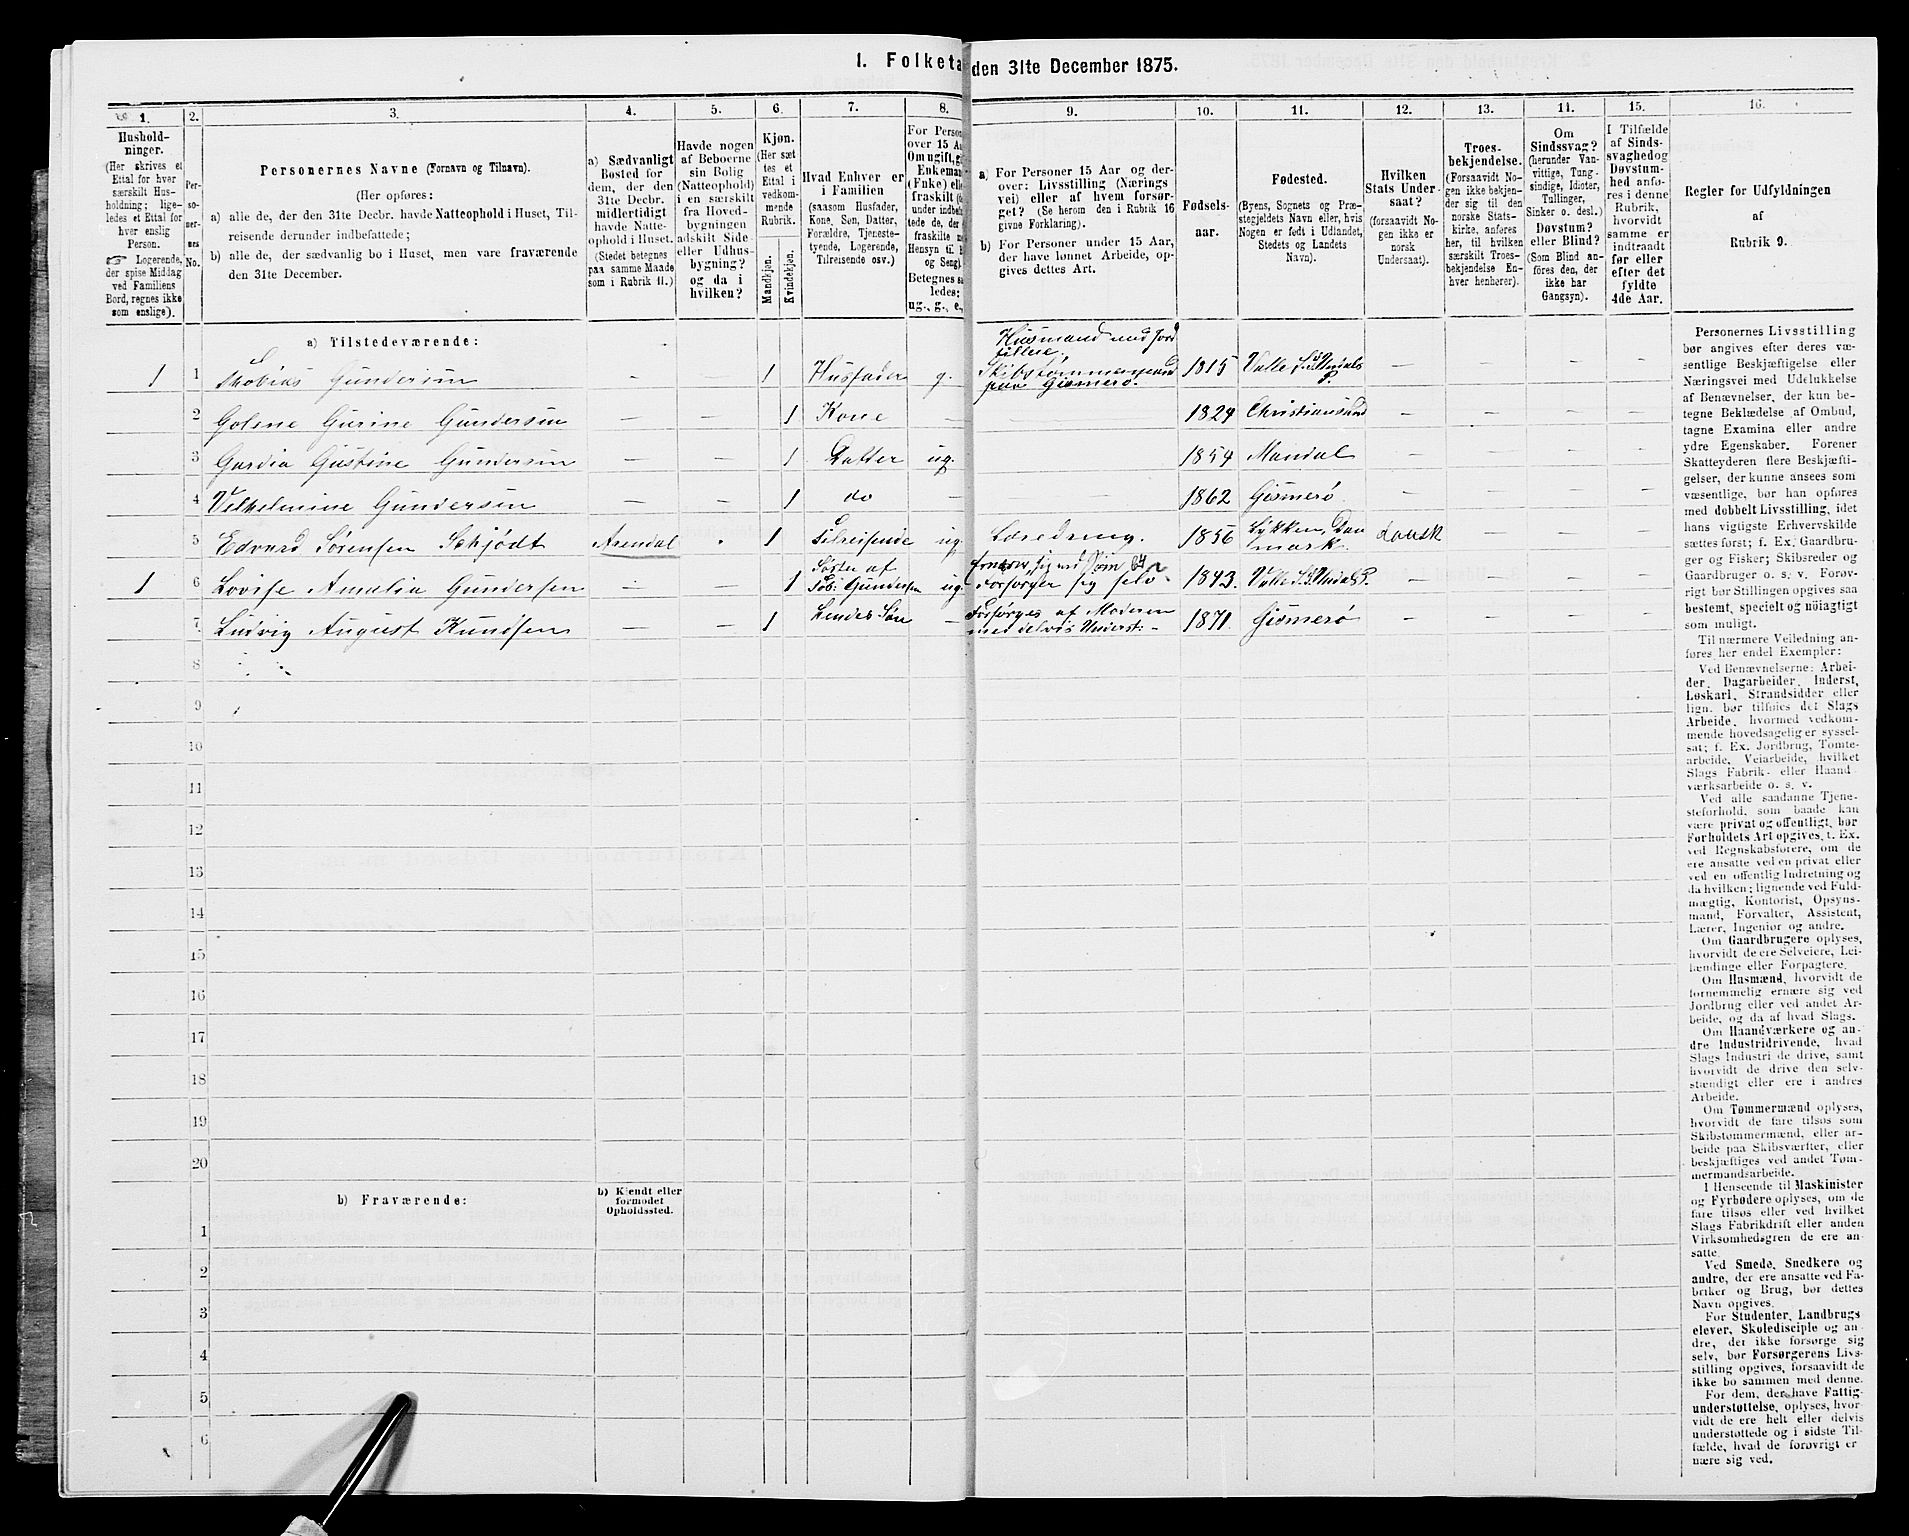 1. Folketa
den 31te December 1875.
1.
2.
3.
4.
5.
6.
7.
8.
9.
10.
11.
12.
13.
14.
15.
16.
Hushold-
ninger.
(Her skrives et
Ettal for hver
særskilt Hus-
holdning; lige-
ledes et Ettal for
hver enslig
Person.
☞ Logerende,
der spise Middag
ved Familiens
Bord, regnes ikke
som enslige).
Per-
so-
ner-
nes
No.
Personernes Navne (Fornavn og Tilnavn).
(Her opføres:
a) alle de, der den 31te Decbr. havde Natteophold i Huset, Til-
reisende derunder indbefattede;
b) alle de, der sædvanlig bo i Huset, men vare fraværende
den 31te December.
a) Sædvanligt
Bosted for
dem, der den
31te Decbr.
midlertidigt
havde Natte-
ophold i Huset.
(Stedet betegnes
paa samme Maade
som i Rubrik 11.)
Havde nogen
af Beboerne
sin Bolig
(Natteophold)
i en særskilt
fra Hoved-
bygningen
adskilt Side-
eller Udhus-
bygning?
og da i
hvilken?
Kjøn.
(Her sæt
tes et
Ettal i
vedkom-
mende
Rubrik.
Mandkjøn.
Kvindekjøn.
Hvad Enhver er
i Familien
(saasom Husfader,
Kone, Søn, Datter,
Forældre, Tjeneste-
tyende, Logerende,
Tilreisende osv.)
For Person
over 15 Aa
Om ugift, gi
Enkeman
(Enke) elle
fraskilt
under indbe
tede de, der
fraskilte
Hensyn til B
og Seng).
Betegnes sa
ledes:
ug., g., e.,
a) For Personer 15 Aar og der-
over: Livsstilling (Nærings
vei) eller af hvem forsør-
get? (Se herom den i Rubrik 16
givne Forklaring).
b) For Personer under 15 Aar,
der have lønnet Arbeide, op-
gives dettes Art.
Fødsels-
aar.
Fødested.
(Byens, Sognets og Præ-
stegjeldets Navn eller, hvis
Nogen er født i Udlandet,
Stedets og Landets
Navn).
Hvilken
Stats Under-
saat?
(forsaavidt No-
gen ikke er
norsk
Undersaat).
Troes-
bekjendelse.
(Forsaavidt No-
gen ikke bekjen-
der sig til den
norske Stats-
kirke, anføres
her, til hvilken
særskilt Troes-
bekjendelse En-
hver henhører).
Om
Sindssvag?
(herunder Van-
vittige, Tung-
sindige, Idioter,
Tullinger,
Sinker o. desl.)
Døvstum?
eller Blind?
(Som Blind an-
føres den, der
ikke har
Gangsyn).
I Tilfælde
af Sinds-
svaghed og
Døvstum-
hed anfø-
res i denne
Rubrik,
hvorvidt
samme er
indtraadt
før eller
efter det
fyldte
4de Aar.
Regler for Udfyldningen
af
Rubrik 9.
a) Tilstedeværende:
1 1 Thobias Gundersen — — 1 Husfader g. Husmand med Jord
Skibstømmermand
paa Gismerø. 1815 Valle S. Undals
P. — — —
2 Golene Gurine Gundersen — — 1 Kone — — 1824 Christiansand — — —
3 Gardia Gustine Gundersen — — 1 Datter ug. — 1859 Mandal — — —
4 Vilhelmine Gundersen — — 1 do — — 1862 Gismerø — — —
5 Edvard Sørensen Schjödt Arendal 1 Tilreisende ug. 1856 Løkken, Dan
mark. dansk — — —
1 6 Lovise Amalia Gundersen 1 Søster af
Tob: Gundersen ug. Ernærer sig ved Søm
Forsørger sig selv 1843 Valle S. Undals P. — — —
7 Ludvig August Knudsen — — 1 hendes Søn — Forsørges af Moderen
med delvis Underst: 1871 Gismerø — — —
8
9
10
11
12
13
14
15
16
17
18
19
20
b) Fraværende:
b) Kjendt eller
formodet
Opholdssted.
1
2
3
4
5
6
Personernes Livsstilling
bør angives efter deres væ-
sentlige Beskjæftigelse eller
Næringsvei med Udelukkelse
af Benævnelser, der kun be-
tegne Beklædelse af Ombud,
tagne Examina eller andre
ydre Egenskaber. Forener
Skatteyderen flere Beskjæfti-
gelser, der kunne ansees som
væsentlige, bør han opføres
med dobbelt Livsstilling, idet
hans vigtigste Erhvervskilde
sættes først; f. Ex. Gaardbru-
ger og Fisker; Skibsreder og
Gaardbruger o. s. v. Forøv-
rigt bør Stillingen opgives saa
bestemt, specielt og nöiagtigt
som muligt.
Til nærmere Veiledning an-
føres her endel Exempler:
Ved Benævnelserne: Arbei-
der, Dagarbeider, Inderst,
Løskarl, Strandsidder eller
lign. bør tilføies det Slags
Arbeide, hvormed vedkom-
mende hovedsagelig er syssel-
sat; f. Ex. Jordbrug, Tomte-
arbeide, Veiarbeide, hvilket
Slags Fabrik- eller Haand
værksarbeide o. s. v.
Ved alle saadanne Tjene-
steforhold, som baade kan
være privat og offentligt, bør
Forholdets Art opgives, t. Ex.
ved Regnskabsførere, om de
ere ansatte ved en privat eller
ved en offentlig Indretning og
da hvilken; lignende ved Fuld-
mægtig, Kontorist, Opsyns-
mand, Forvalter, Assistent,
Lærer, Ingeniør og andre.
Om Gaardbrugere oplyses,
hvorvidt de ere Selveiere, Lei-
lændinge eller Forpagtere.
Om Husmænd, hvorvidt de
fornemmelig ernære sig ved
Jordbrug eller ved andet Ar-
beide, og da af hvad Slags.
Om Haandværkere og an-
dre Industridrivende, hvad
Slags Industri de drive, samt
hvorvidt de drive den selv-
stændigt eller ere i andres
Arbeide.
Om Tømmermænd oplyses,
hvorvidt de fare tilsøs som
Skibstømmermænd, eller ar-
beide paa Skibsværfter, eller
beskjæftiges ved andet Tøm-
mermandsarbeide.
I Henseende til Maskinister
og Fyrbødere oplyses, om de
fare tilsøs eller ved hvilket
Slags Fabrikdrift eller anden
Virksomhedsgren de ere an-
satte.
Ved Smede, Snedkere og
andre, der ere ansatte ved Fa-
briker og Brug, bør dettes
Navn opgives.
For Studenter, Landbrugs
elever, Skoledisciple og an-
dre, der ikke forsørge sig
selv, bør Forsørgerens Livs-
stilling opgives, forsaavidt de
ikke bo sammen med denne.
For dem, der have Fattig-
understøttelse, oplyses, hvor-
vidt de ere helt eller delvis
understøttede og i sidste Til-
fælde, hvad de forøvrigt er
nære sig ved.